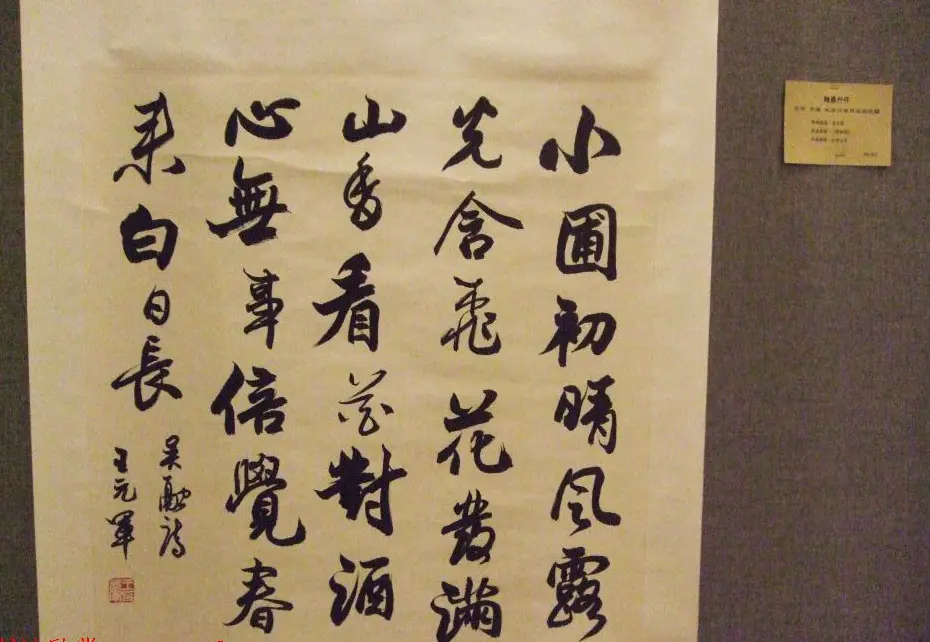 小圃初晴風露
光含桃花發滿
山香看花對酒
心無事倍覺春
來白日長
吳融詩
王元軍